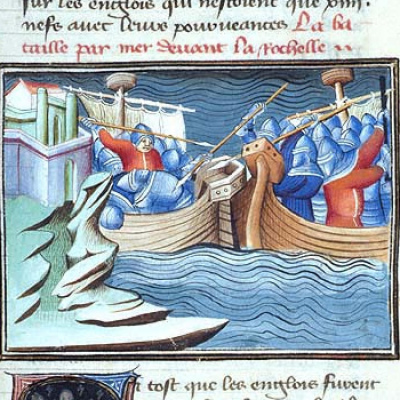 sur les englois qui nestoient que xiiii.
nefs auec leurs pourueances La ba
taille par mer deuant La Rochelle
tost que les englois furent